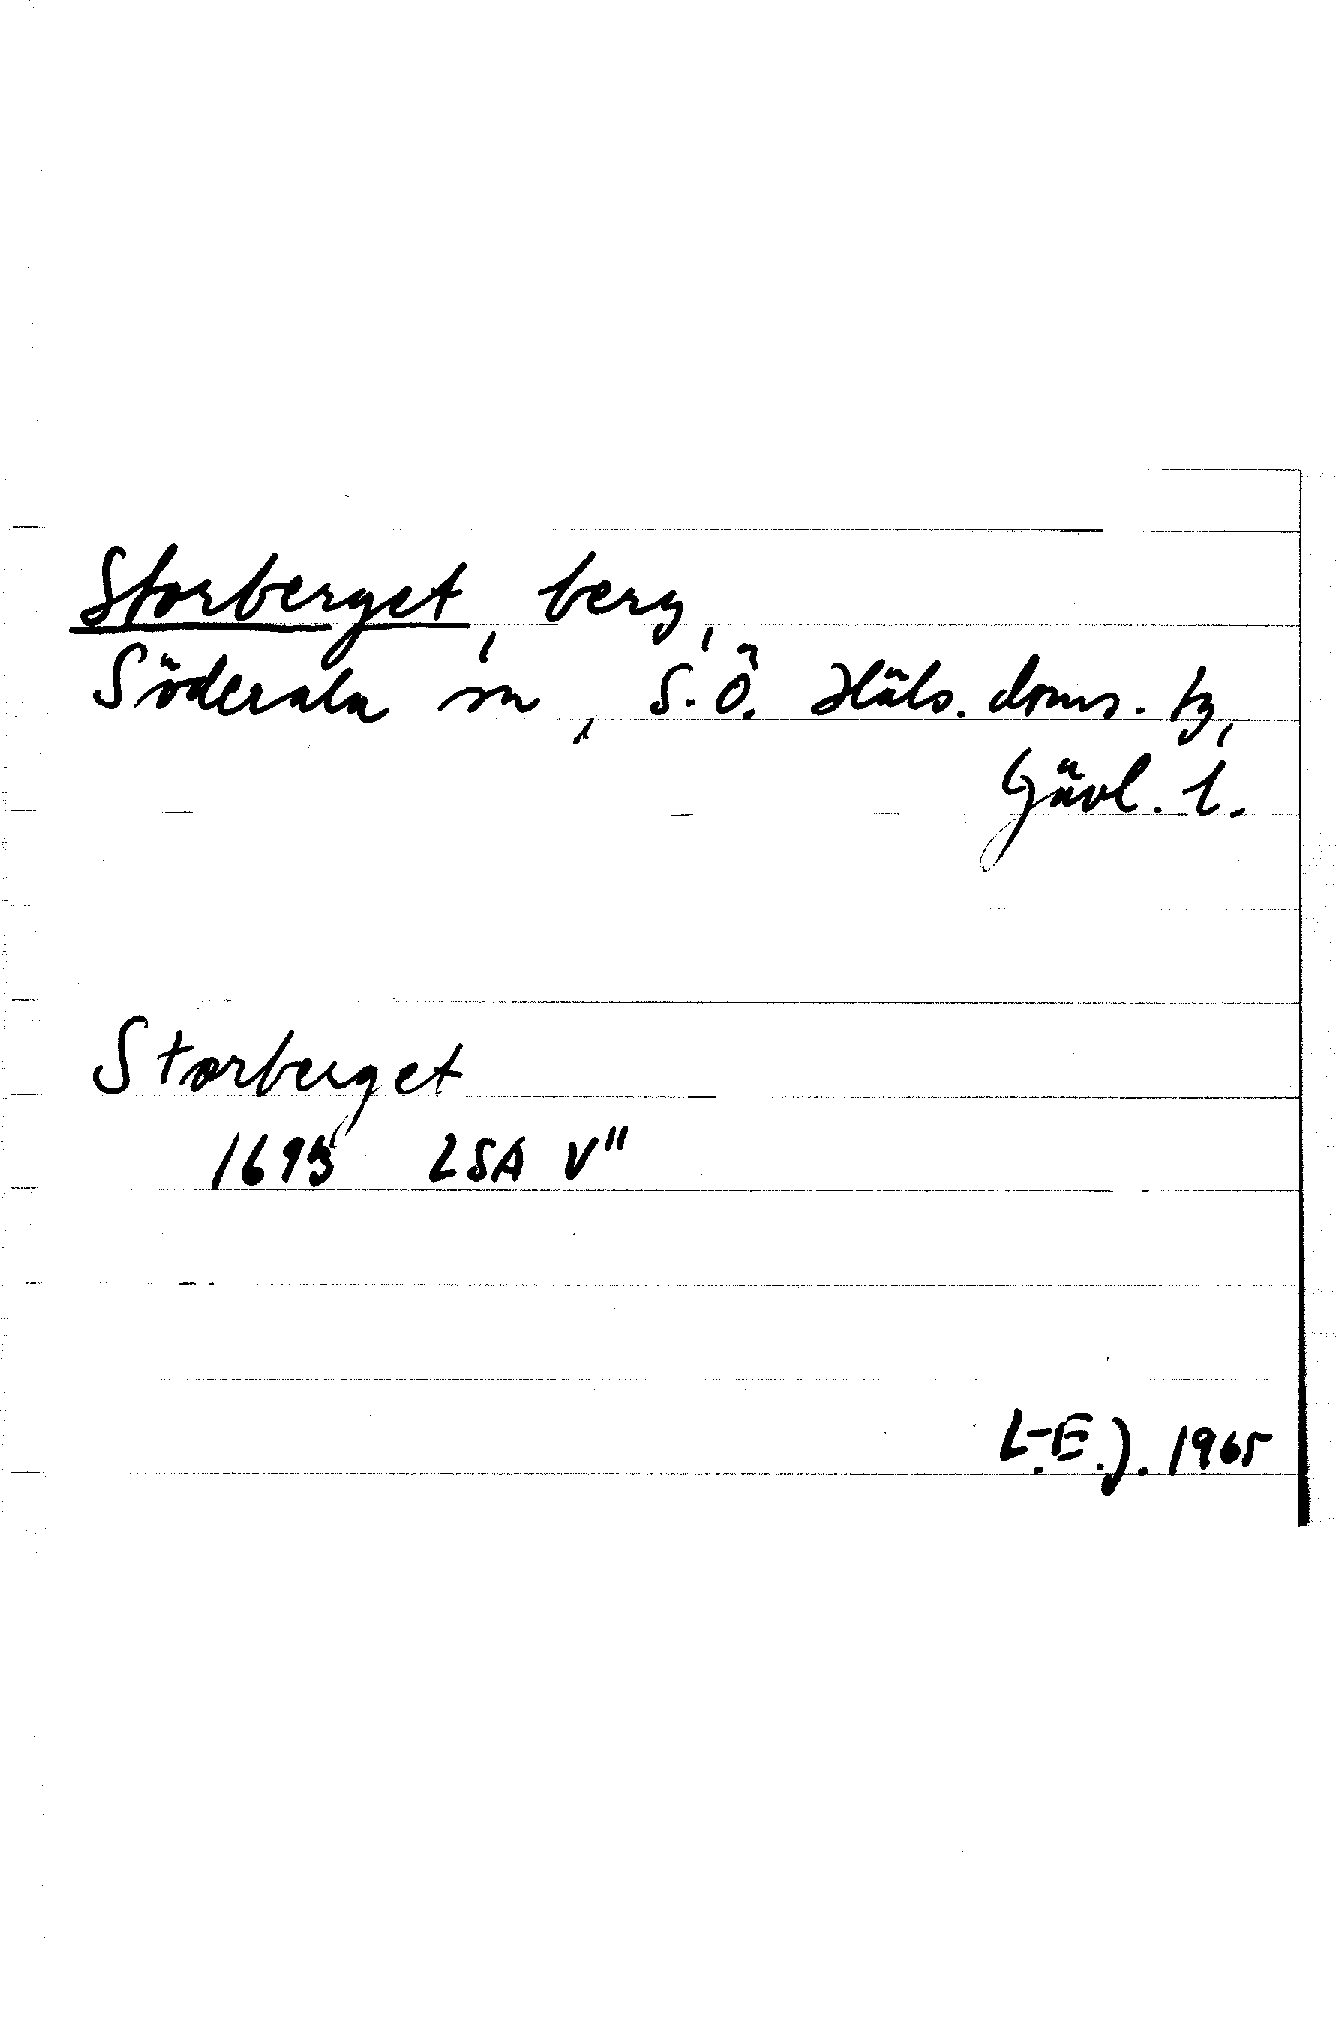 Storberget, berg,
Söderala sn, S.Ö. Häls. doms. tg,
Gävl. l.
Storberget
1693 LSA V"
L-E.J. 1965